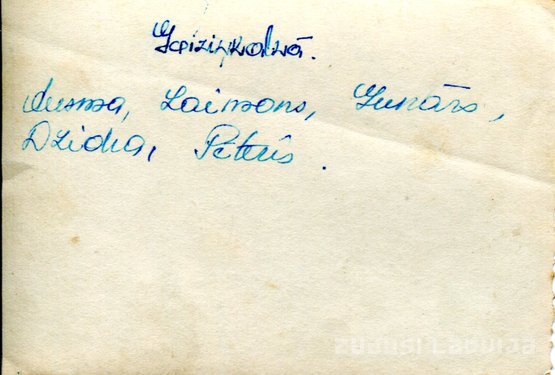 Gaiziņkalnā.
Ausma, Laimons, Gunārs,
Dzidra, Pēteris.
zudusi Latvija